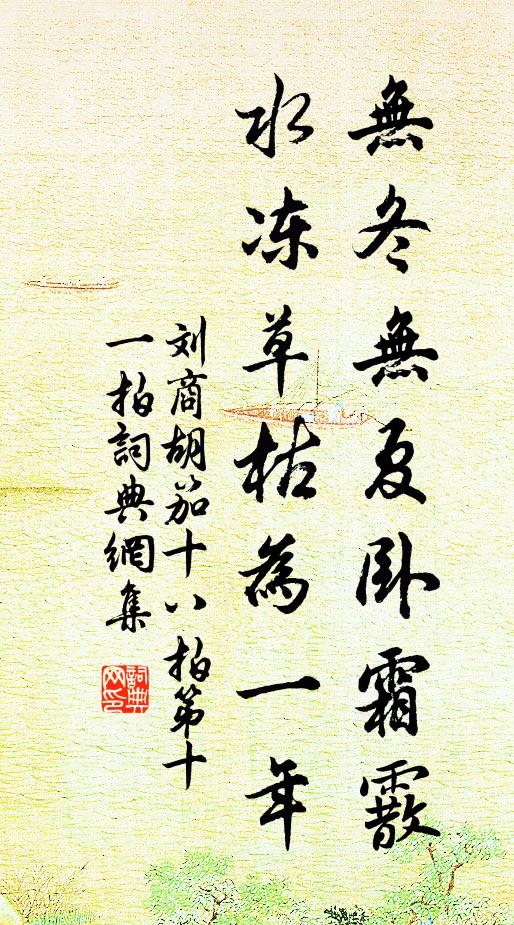 無冬無夏卧霜霰
水冻草枯為一年
刘商胡笳十八拍第十
一拍詞典網集
詞典网印